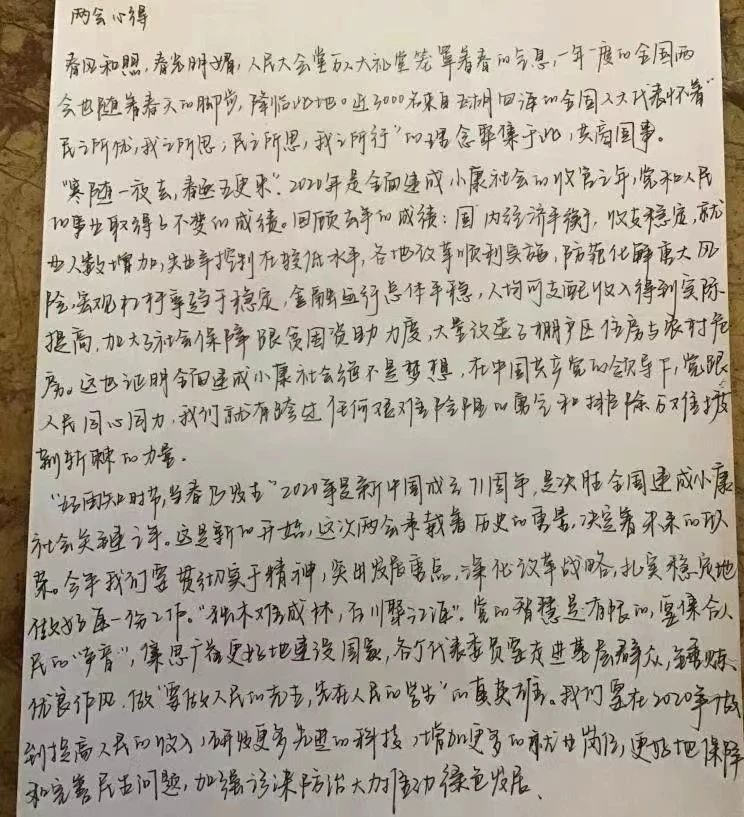 两会心得
春风和煦,春光明媚,人民大会堂万人大礼堂笼罩着春的气息,一年一度的全国两
会也随着春天的脚步,降临此地。近3000名来自五湖四海的全国人大代表怀着“
民之所忧,我之所思;民之所思,我之所行”的理念聚集于此,共商国事。
“寒随一夜去,春逐五更来”。2020年是全面建成小康社会的收官之年,党和人民
的事业取得了不斐的成绩。回顾去年的成绩:国内经济平衡,收支稳定,就
业人数增加,失业率控制在较低水平,各地改革顺利实施,防范化解重大风
险,宏观杠杆率趋于稳定,金融运行总体平稳,人均可支配收入得到实际
提高,加大了社会保障跟贫困资助力度,大量改造了棚户区住房与农村危
房。这也证明全面建成小康社会绝不是梦想,在中国共产党的领导下,党跟
人民同心同力,我们就有跨过任何艰难险阻的勇气和排除万难披
荆斩棘的力量。
“好雨知时节,当春乃发生”2020年是新中国成立71周年,是决胜全国建成小康
社会关键之年。这是新的开始,这次两会承载着历史的重量,决定着未来的收
获。今年我们要贯彻实干精神,突出发展重点,深化改革战略,扎实稳定地
做好每一份工作。“独木难成林,百川聚江海”。党的智慧是有限的,要集合人
民的“声音”,集思广益更好地建设国家,各个代表委员要走进基层群众,锤炼
优良作风,做“要做人民的先生,先作人民的学生”的真实践。我们要在2020年做
到提高人民的收入,研发更多先进的科技,增加更多的就业岗位,更好地保障
和完善民生问题,加强污染防治大力推动绿色发展、